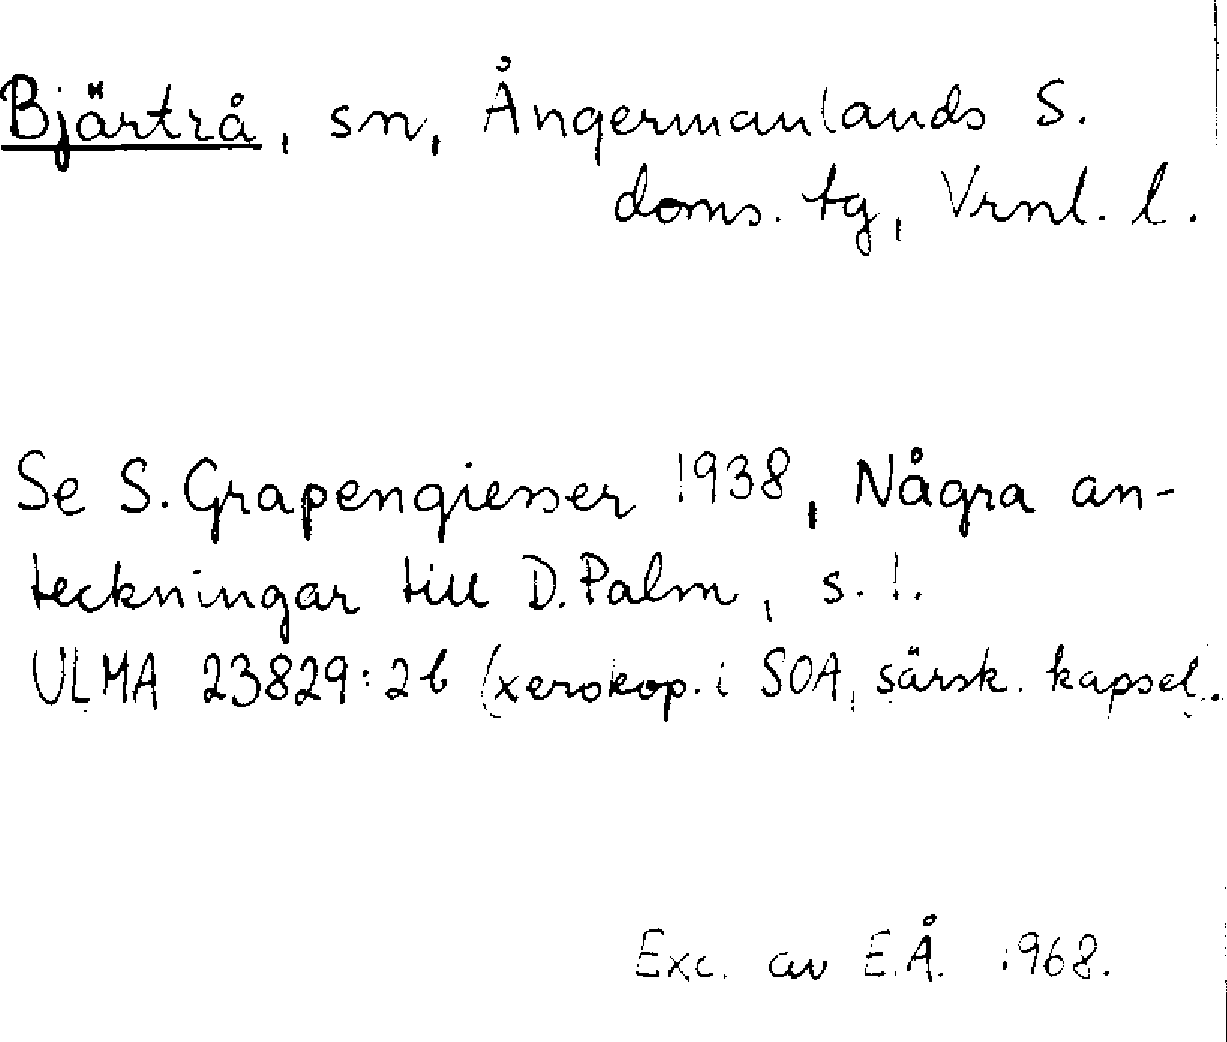 Bjärtrå, sn, Ångermanlands S.
doms. tg, Vrnl. l.
Se S. Grapengiesser 1938, Några an-
teckningar till D. Palm, s. 1.
ULMA 23829:2b (xerokop. i SOA, särsk. kapsel).
Exc. av E.Å. 1968.